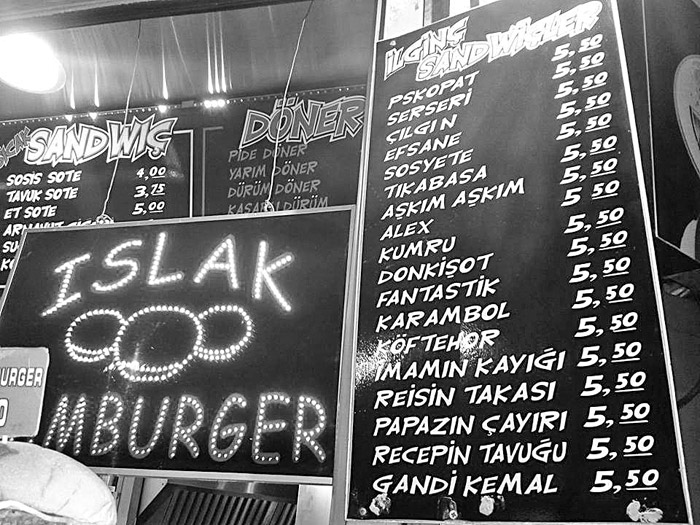 SANDWİÇ
SOSİS SOTE 4,00
TAVUK SOTE 3,75
ET SOTE 5,00
ARNAVUT
DÖNER
PİDE DÖNER
YARIM DÖNER
DÜRÜM DÖNER
KAŞARLI DÜRÜM
ISLAK
MBURGER
URGER
İLGİNÇ
SANDWİÇLER
PSKOPAT 5,50
SERSERİ 5,50
ÇILGIN 5,50
EFSANE 5,50
SOSYETE 5,50
TIKABASA 5,50
AŞKIM AŞKIM 5,50
ALEX 5,50
KUMRU 5,50
DONKİŞOT 5,50
FANTASTİK 5,50
KARAMBOL 5,50
KÖFTEHOR 5,50
İMAMIN KAYIĞI 5,50
REİSİN TAKASI 5,50
PAPAZIN ÇAYIRI 5,50
RECEPİN TAVUĞU 5,50
GANDİ KEMAL 5,50